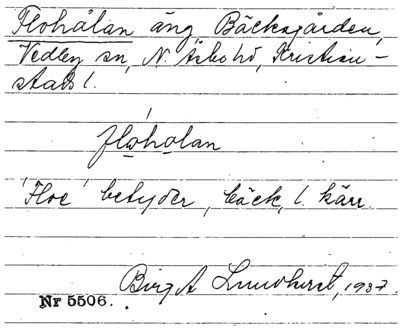 Flohålan äng Bäcksgården,
Vedby sn, N. Åsbo hd, Kristian-
stads l.
flóholan
'Floe' betyder, bäck, l. kärr.
Birgit Lundhurst, 1937.
Nr 5506.